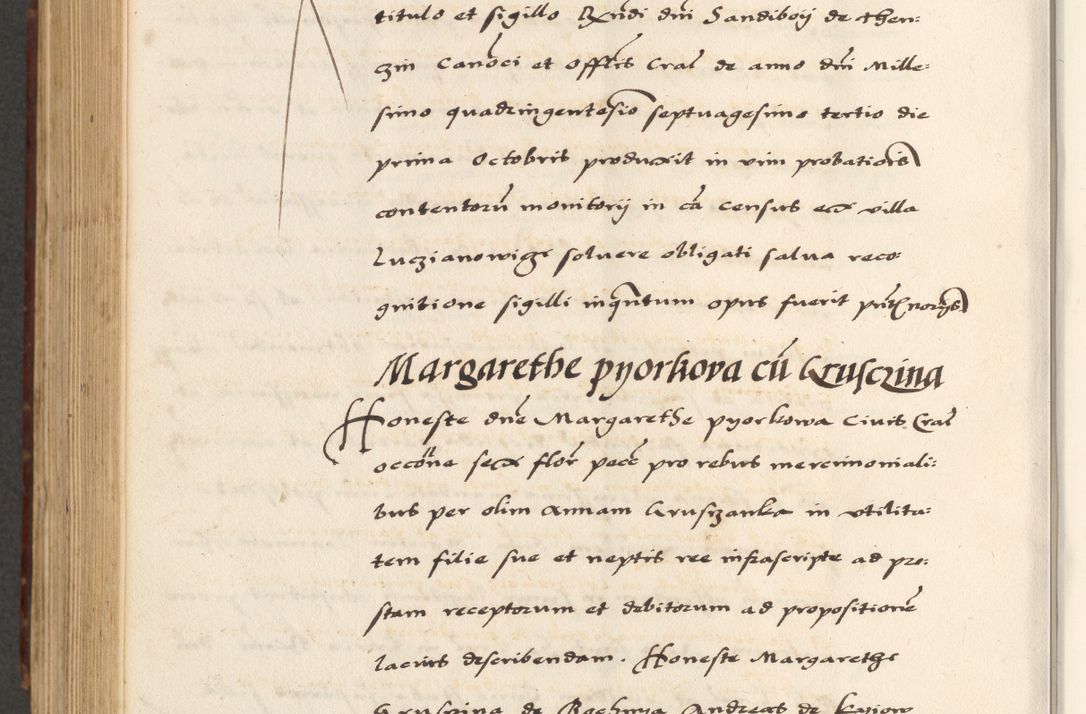 titulo et sigillo Rndi dni Sandiboij de Then:
zin Canoci et Offtis Crac de anno dni Mille:
simo quadringentesio septuagesimo tertio die
prima Octobris produxit in vim probatiois
contentoru monitorij in ca census ex villa
Luczianowige solvere obligati salva reco:
gnitione sigilli inqntum opus fuerit
Margarethe pyorkova cu Grusczina
Honeste dne Margarethe pyorkowa Civis Crac
sex flor pecc pro rebus mercimoniali:
bus per olim Annam Gruszanka in utilita:
tem filie sue et neptis ree infrascripte ad pro:
stam receptorum et debitorum ad propositione
lacius describendam. Honeste Margarethe
Grusczina de Bochnya Andreas de